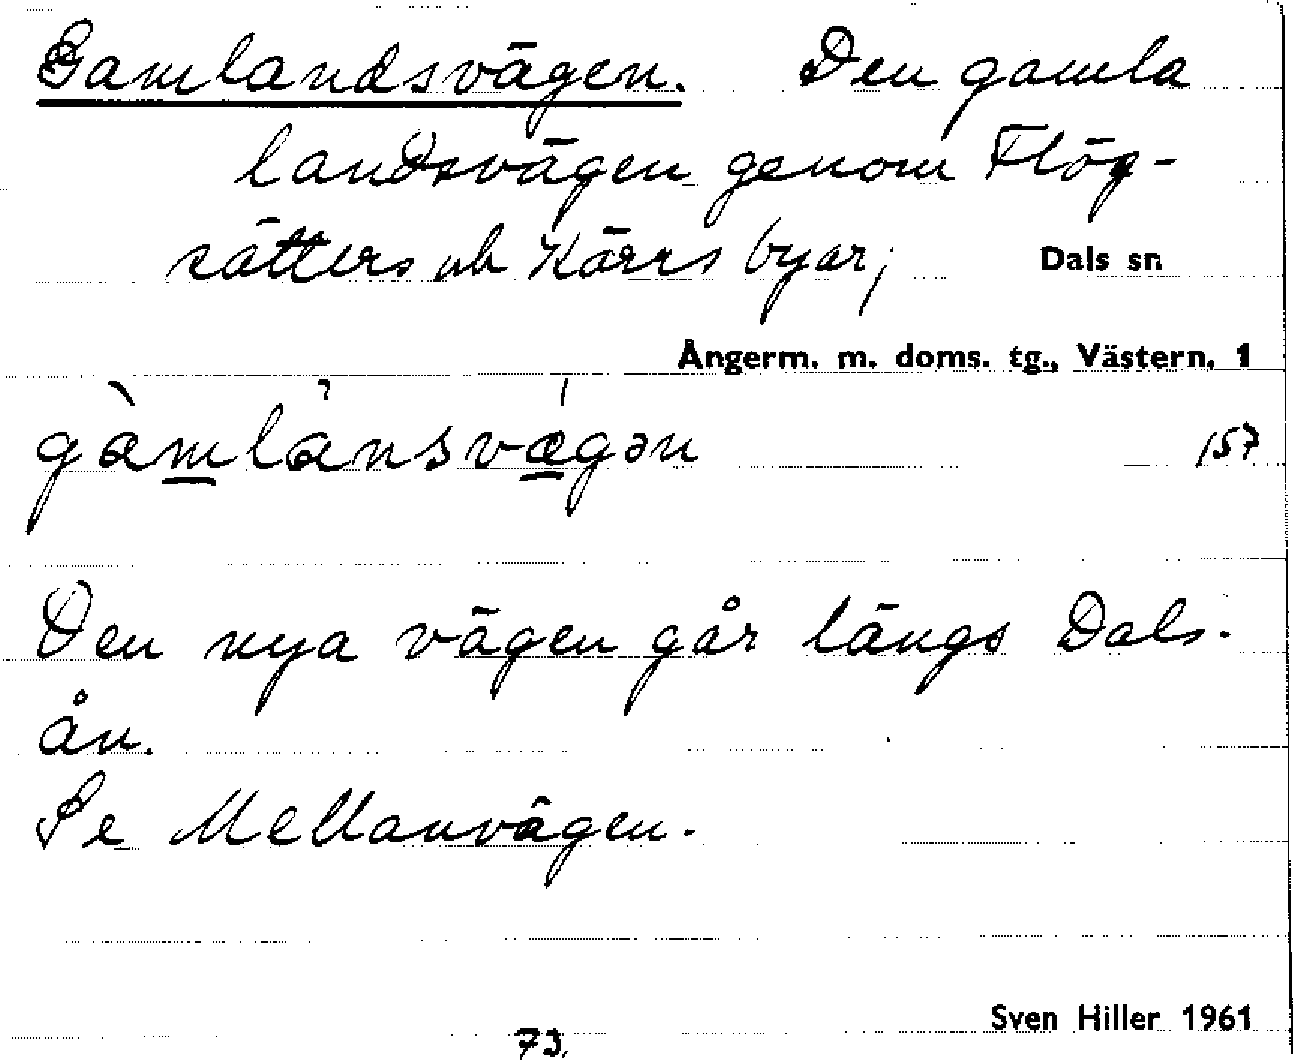 Gamlandsvägen. Den gamla
landsvägen genom Flög-
sätters och Kärrs byar; Dals sn
Ångerm. m. doms. tg., Västern. 1
gàmlànsvǽgən 157
Den nya vägen går längs Dals-
ån.
Se Mellanvägen.
Sven Hiller 1961
73.